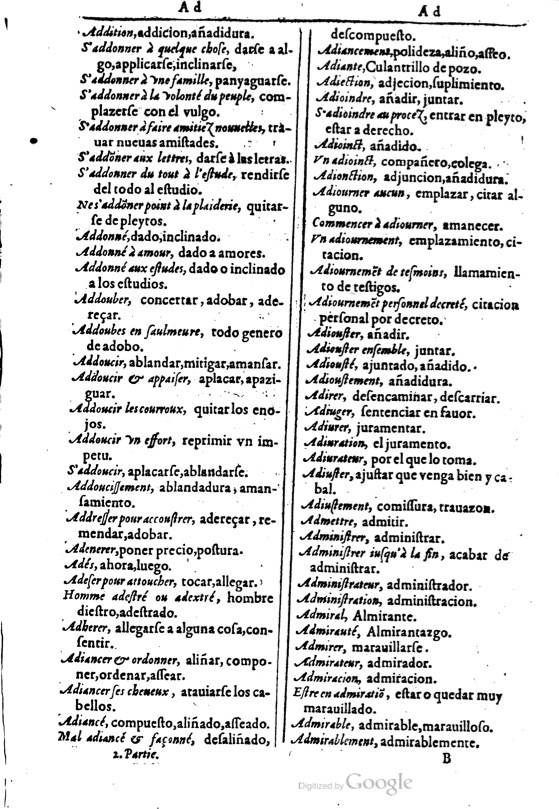 Ad
Addition, addicion, añadidura.
S'addonner à quelque chose, darse a al-
go, applicarse, inclinarse,
S'addonner à vne famille, panyaguarse.
S'addonner à la volonté du peuple, com-
plazerse con el vulgo.
S'addonner à faire amitiez nouuelles, tra-
uar nueuas amistades.
S'addõner aux lettres, darse à las letras.
S'addonner du tout à l'estude, rendirse
del todo al estudio.
Ne s'addõner point à la plaiderie, quitar-
se de pleytos.
Addonné, dado, inclinado.
Addonné à amour, dado a amores.
Addonné aux estudes, dado o inclinado
a los estudios.
Addouber, concertar, adobar, ade-
reçar.
Addoubes en saulmeure, todo genero
de adobo.
Addoucir, ablandar, mitigar, amansar.
Addoucir & appaiser, aplacar, apazi-
guar.
Addoucir les courroux, quitar los eno-
jos.
Addoucir vn effort, reprimir vn im-
petu.
S'addoucir, aplacarse, ablandarse.
Addoucissement, ablandadura, aman-
samiento.
Addresser pour accoustrer, adereçar, re-
mendar, adobar.
Adenerer, poner precio, postura.
Adés, ahora, luego.
Adeser pour attoucher, tocar, allegar.
Homme adestré ou adextré, hombre
diestro, adestrado.
Adherer, allegarse a alguna cosa, con-
sentir.
Adiancer & ordonner, aliñar, compo-
ner, ordenar, assear.
Adiancer ses cheueux, atauiarse los ca-
bellos.
Adiancé, compuesto, aliñado, asseado.
Mal adiancé & façonné, desaliñado,
2. Partie.
Ad
descompuesto.
Adiancement, polideza, aliño, asseo.
Adiante, Culantrillo de pozo.
Adiection, adjecion, supliniento.
Adioindre, añadir, juntar.
S'adioindre au procez, entrar en pleyto,
estar a derecho.
Adioinct, añadido.
Vn adioinct, compañero, colega.
Adionction, adjuncion, añadidura.
Adiourner aucun, emplazar, citar al-
guno.
Commencer à adiourner, amanecer.
Vn adiournement, emplazamiento, ci-
tacion.
Adiournemẽt de tesmoins, llamamien-
to de testigos.
Adiournemẽt personnel decreté, citacion
personal por decreto.
Adiouster, añadir.
Adiouster ensemble, juntar.
Adiousté, ajuntado, añadido.
Adioustement, añadidura.
Adirer, desencaminar, descarriar.
Adiuger, sentenciar en fauor.
Adiurer, juramentar.
Adiuration, el juramento.
Adiurateur, por el que lo toma.
Adiuster, ajustar que venga bien y ca-
bal.
Adiustement, comissura, trauazon.
Admettre, admitir.
Administrer, administrar.
Administrer iusqu'à la fin, acabar de
administrar.
Administrateur, administrador.
Administration, administracion.
Admiral, Almirante.
Admirauté, Almirantazgo.
Admirer, marauillarse.
Admirateur, admirador.
Admiracion, admiracion.
Estre en admiratiõ, estar o quedar muy
marauillado.
Admirable, admirable, marauilloso.
Admirablement, admirablemente.
B
Digitized by Google